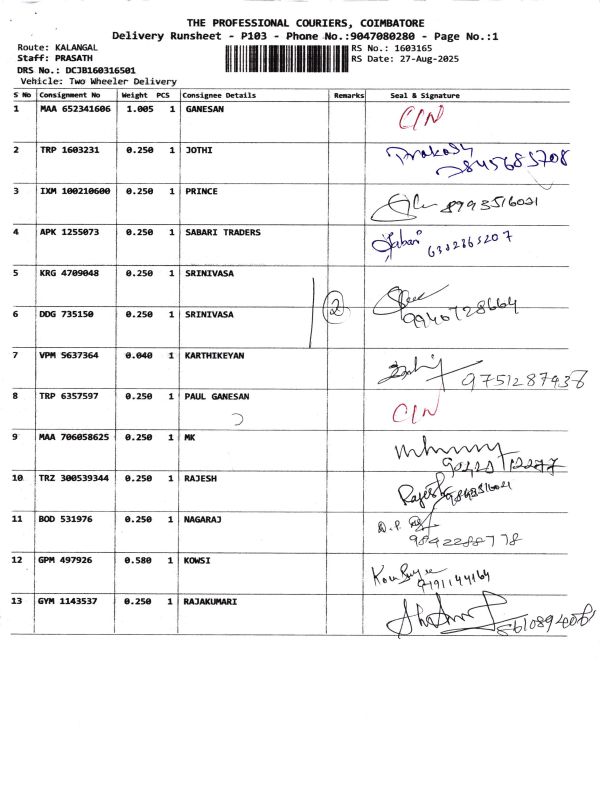 THE PROFESSIONAL COURIERS, COIMBATORE
Delivery Runsheet - P103 - Phone No.:9047080280 - Page No.:1
Route: KALANGAL
Staff: PRASATH
DRS No.: DCJB160316501
Vehicle: Two Wheeler Delivery
RS No.: 1603165
RS Date: 27-Aug-2025
S No Consignment No Weight PCS Consignee Details Remarks Seal & Signature
1 MAA 652341606 1.005 1 GANESAN C/N
2 TRP 1603231 0.250 1 JOTHI Prakash
7845683708
3 IXM 100210600 0.250 1 PRINCE 8993516021
4 APK 1255073 0.250 1 SABARI TRADERS Sabari 6382865207
5 KRG 4709048 0.250 1 SRINIVASA
6 DDG 735150 0.250 1 SRINIVASA 2 9940728664
7 VPM 5637364 0.040 1 KARTHIKEYAN
8 TRP 6357597 0.250 1 PAUL GANESAN C/N
9 MAA 706058625 0.250 1 MK
10 TRZ 300539344 0.250 1 RAJESH Rajesh
11 BOD 531976 0.250 1 NAGARAJ
9892288778
12 GPM 497926 0.580 1 KOWSI
9191144164
13 GYM 1143537 0.250 1 RAJAKUMARI